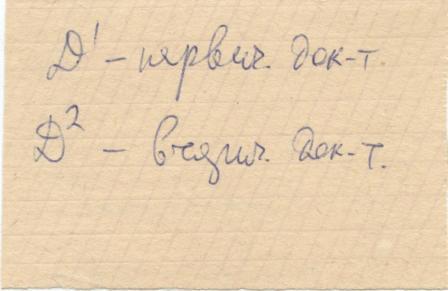 Д¹ – первич. док-т.
Д² – вторич. док-т.